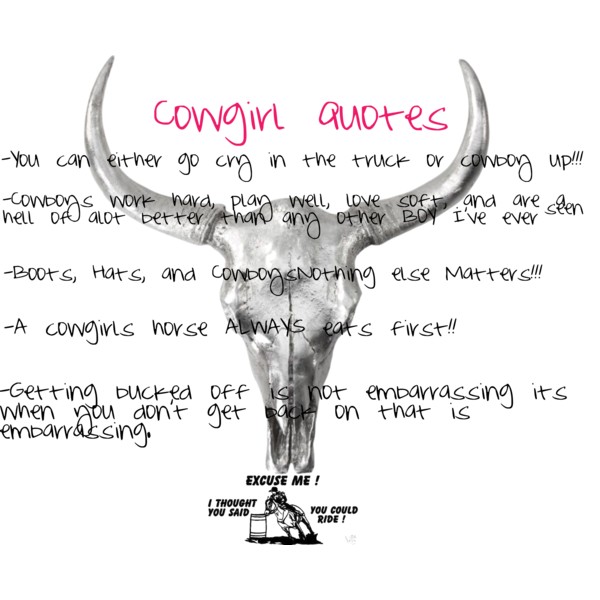 Cowgirl Quotes
-You can either go cry in the truck or cowboy up!!!
-Cowboys work hard, play well, love soft, and are a
hell of alot better than any other BOY I've ever seen
-Boots, Hats, and CowboysNothing else Matters!!!
-A cowgirls horse ALWAYS eats first!!
-Getting bucked off is not embarrassing its
when you don't get back on that is
embarrassing.
EXCUSE ME !
I THOUGHT
YOU SAID
YOU COULD
RIDE !